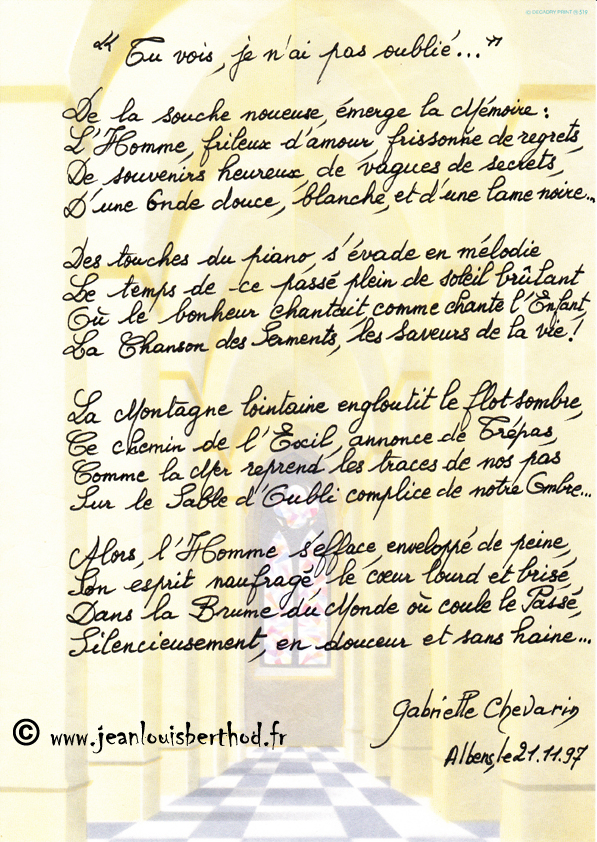 © DECADRY PRINT IS 318
“ Tu vois, je n'ai pas oublié... ”
De la souche noueuse, émerge la Mémoire :
L'Homme, frileux d'amour, frissonne de regrets,
De souvenirs heureux, de vagues de secrets,
D'une Onde douce, blanche, et d'une lame noire...
Des touches du piano, s'évade en mélodie
Le temps de ce passé plein de soleil brûlant
Où le bonheur chantait, comme chante l'Enfant,
La Chanson des Serments, les saveurs de la vie !
La Montagne lointaine engloutit le flot sombre,
Ce chemin de l'Exil, annonce de Trépas,
Comme la Mer reprend les traces de nos pas
Sur le Sable d'Oubli complice de notre Ombre...
Alors, l'Homme s'efface, enveloppé de peine,
Son esprit naufragé, le cœur lourd et brisé,
Dans la Brume du Monde où coule le Passé,
Silencieusement, en douceur et sans haine...
Gabrielle Chevarin
Albens, le 21.11.97
© www.jeanlouisberthod.fr